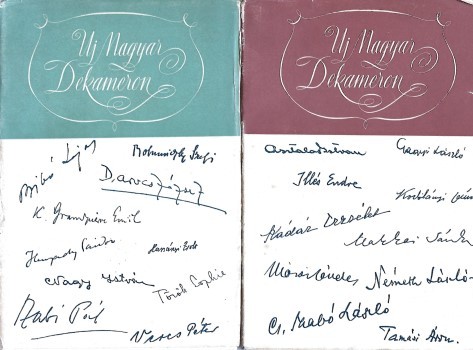 Uj Magyar
Dekameron
Bibó Lajos
Bohuniczky Szefi
Darvas József
K. Grandpierre Emil
Hunyady Sándor
Nagy István
Török Sophie
Szabó Pál
Veres Péter
Uj Magyar
Dekameron
Asztalos István
Gagyi László
Illés Endre
Kodolányi János
Kádár Erzsébet
Makkai Sándor
Németh László
Cs. Szabó László
Tamási Áron.